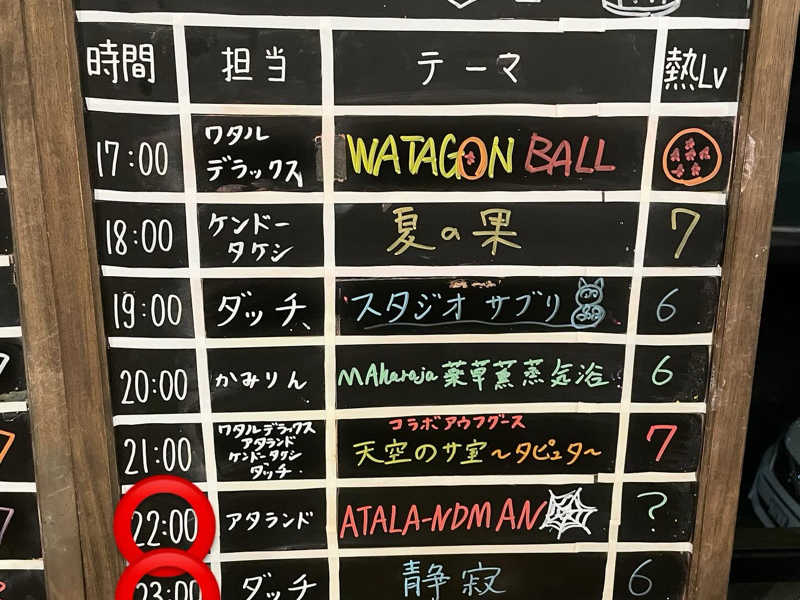 時間 担当 テーマ 熱Lv
17:00 ワタル デラックス WATAGON BALL
18:00 ケンドー タケシ 夏の果 7
19:00 ダッチ、 スタジオ サブリ 6
20:00 かみりん MAharaja 薬草薫蒸気浴 6
21:00 ワタルデラックス アタランド ケンドータケシ ダッチ コラボアウフグース 天空のサ室～タピュタ～ 7
22:00 アタランド ATALA-NDMAN ?
23:00 ダッチ 静寂 6